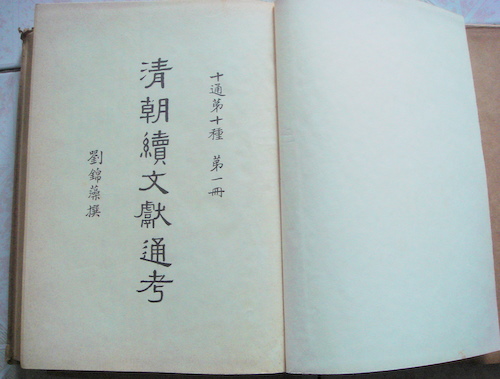 十通第十種 第一冊
清朝續文獻通考
劉錦藻撰